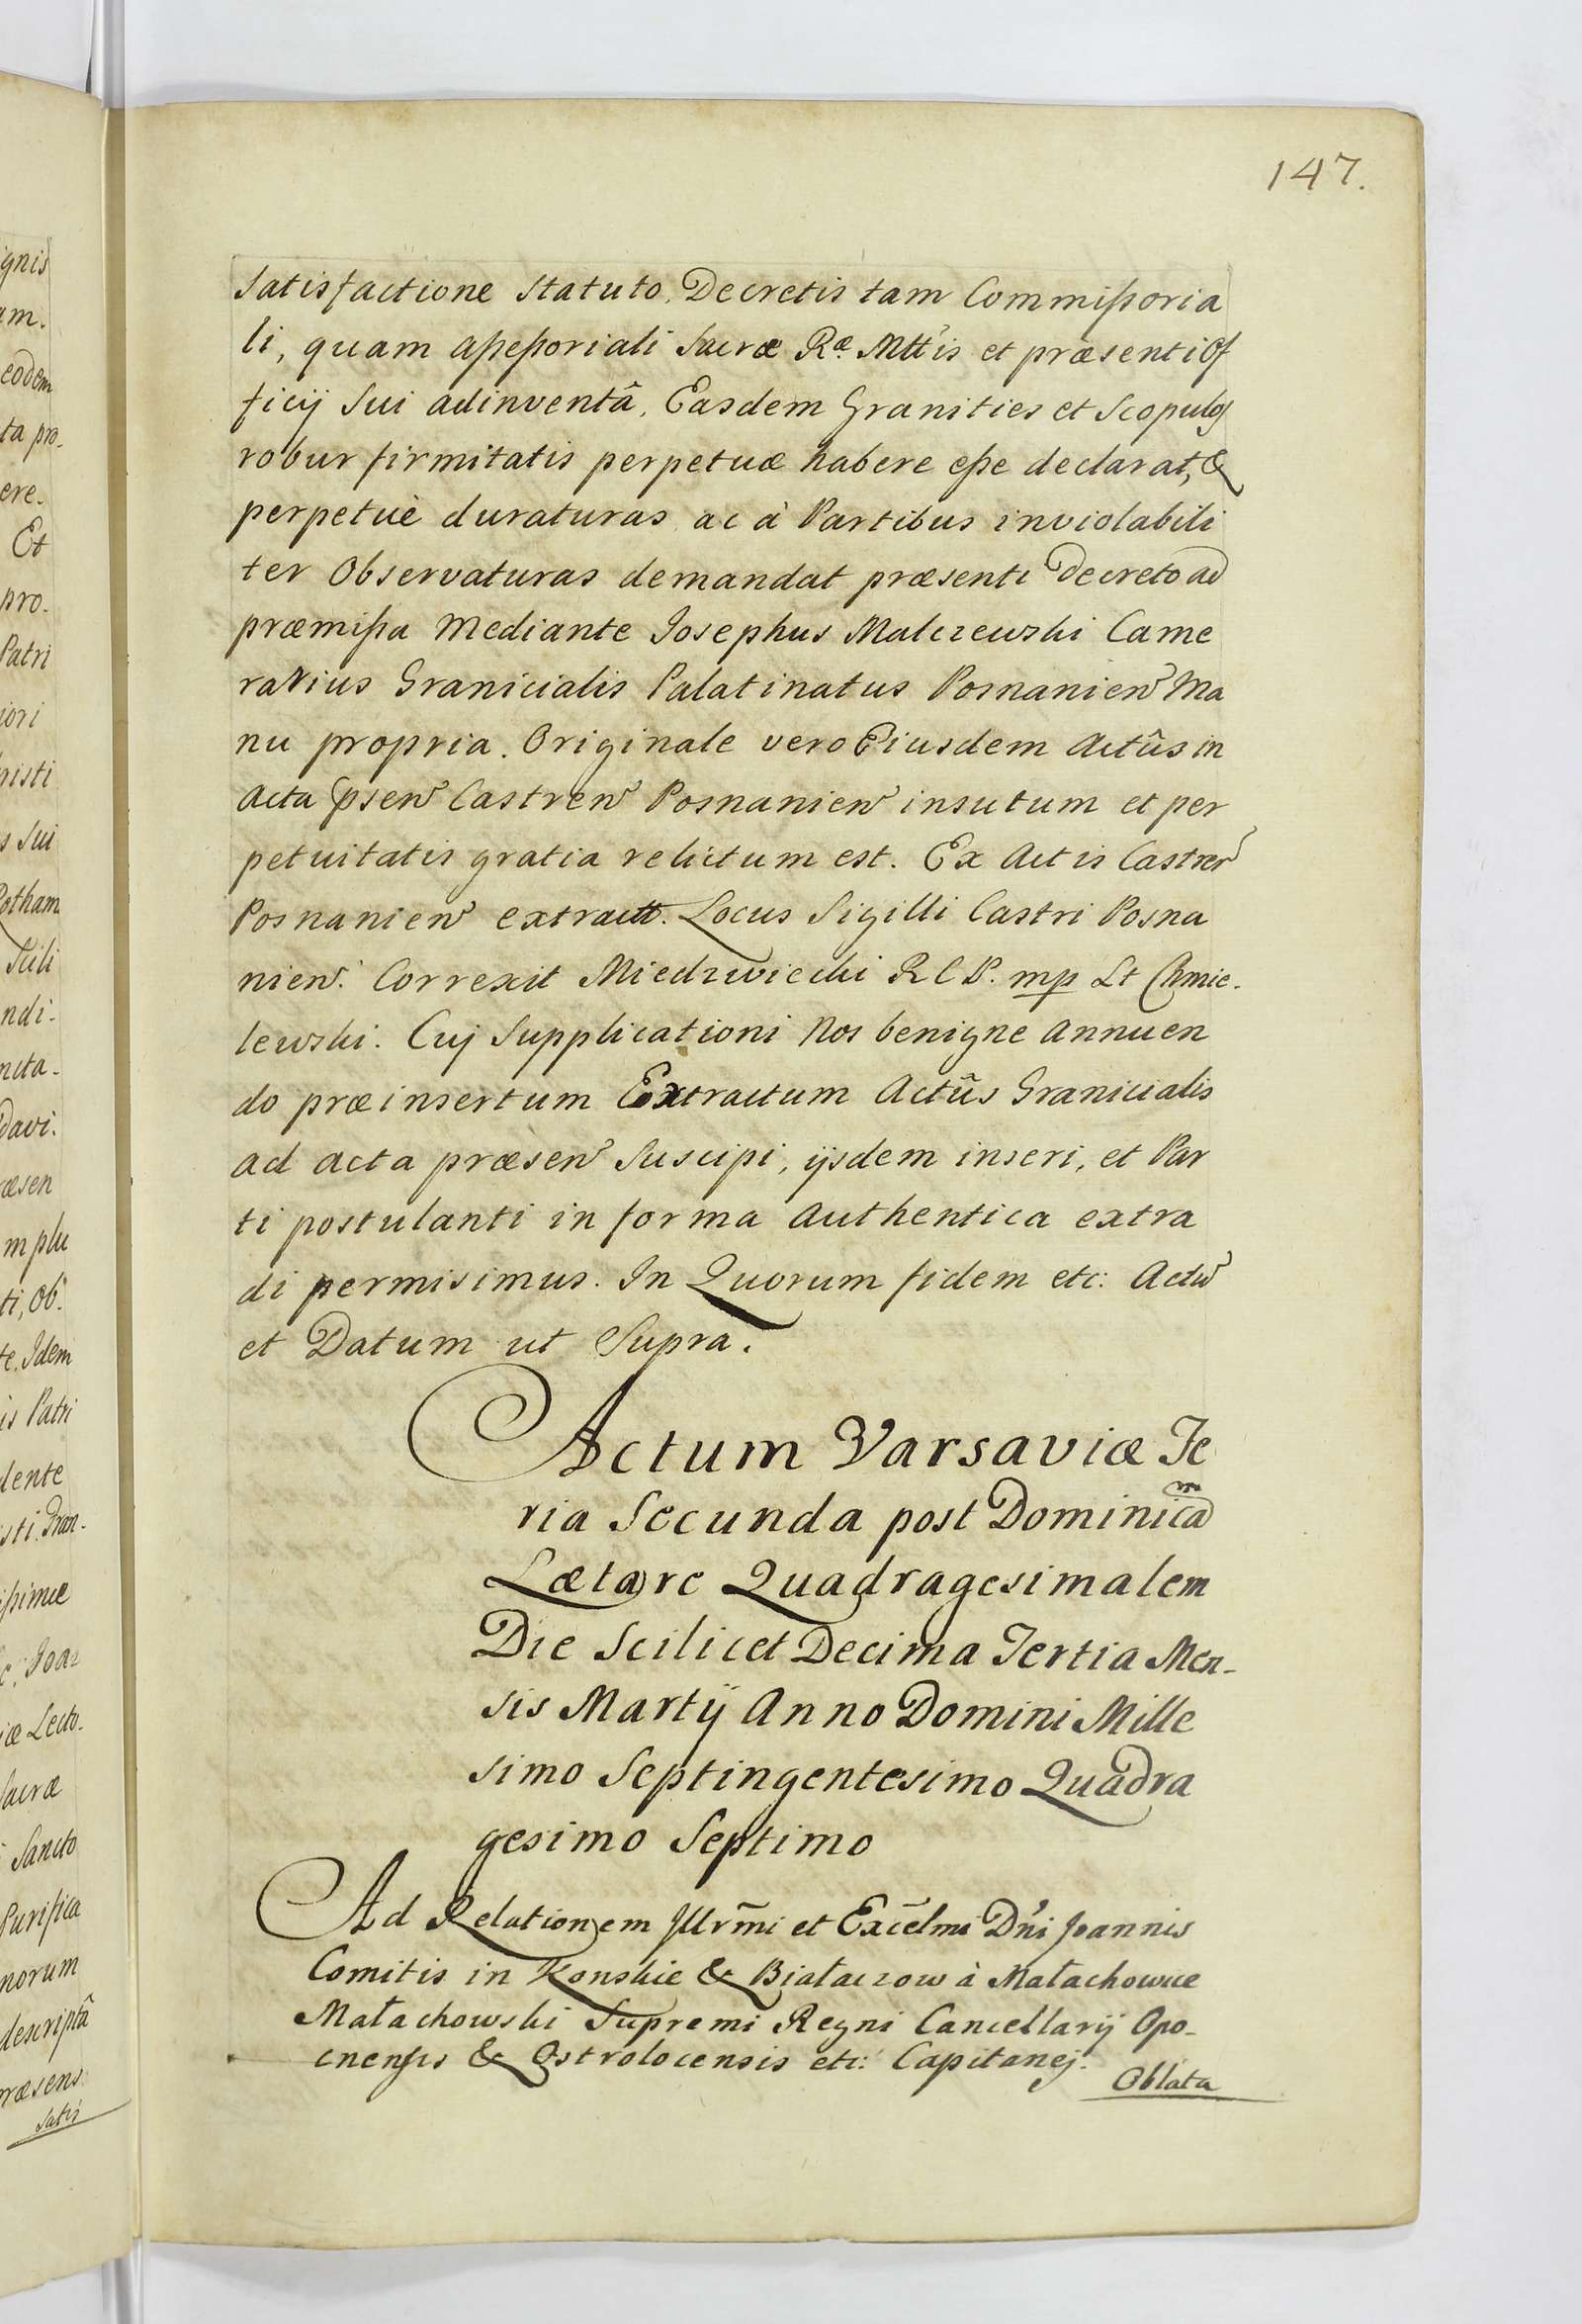 147.
satisfactione Statuto, Decretis tam Commißoria
li, quam aßeßoriali Sacræ Ræ Mttis et præsenti Of
ficij Sui adinventâ, Easdem Granities et Scopulos
robur firmitatis perpetuæ habere eße declarat, &
perpetuè duraturas ac à Partibus inviolabili
ter Observaturas demandat præsenti Decreto ad
præmißa Mediante Josephus Malczewski Came
rarius Granicialis Palatinatus Posnanien Ma
nu propria. Originale vero Eiusdem Actûs in
Acta psen Castren Posnanien insutum et per
petuitatis gratia relictum est. Ex Actis Castren
Posnanien extractt. Locus Sigilli Castri Posna
nien. Correxit Miedzwiecki R C P. mp Lt Chmie-
lewski. Cuj Supplicationi Nos benigne Annuen
do præinsertum Extractum Actûs Granicialis
ad acta præsen Suscipi, ijsdem inseri, et Par
ti postulanti in forma Authentica extra
di permisimus. In Quorum fidem etc: Actu
et Datum ut Supra.
Actum Varsaviæ Fe
ria Secunda post Dominicam
Lætare Quadragesimalem
Die Scilicet Decima Tertia Men-
sis Martij Anno Domini Mille
simo Septingentesimo Quadra
gesimo Septimo
Ad Relationem Illrm̃i et Excẽlmi Dńi Joannis
Comitis in Konskie & Białaczow à Małachowice
Małachowski Supremi Regni Cancellarij Opo-
cnensis & Ostrolocensis etc: Capitanej.
Oblata
gnis
am.
eodem
ta pro-
ere-
Et
pro-
Patri
iori
nisti
s Sui
otham
Scili
ndi-
ncta-
Davi-
æsen
m plu
ti, Ob:
te. Idem
is Patri
dente
sti. Fran-
ißimæ
c: Joan
iæ Lecto-
Sacræ
Sancto
Purifica
norum
descriptâ
ræsens
satis